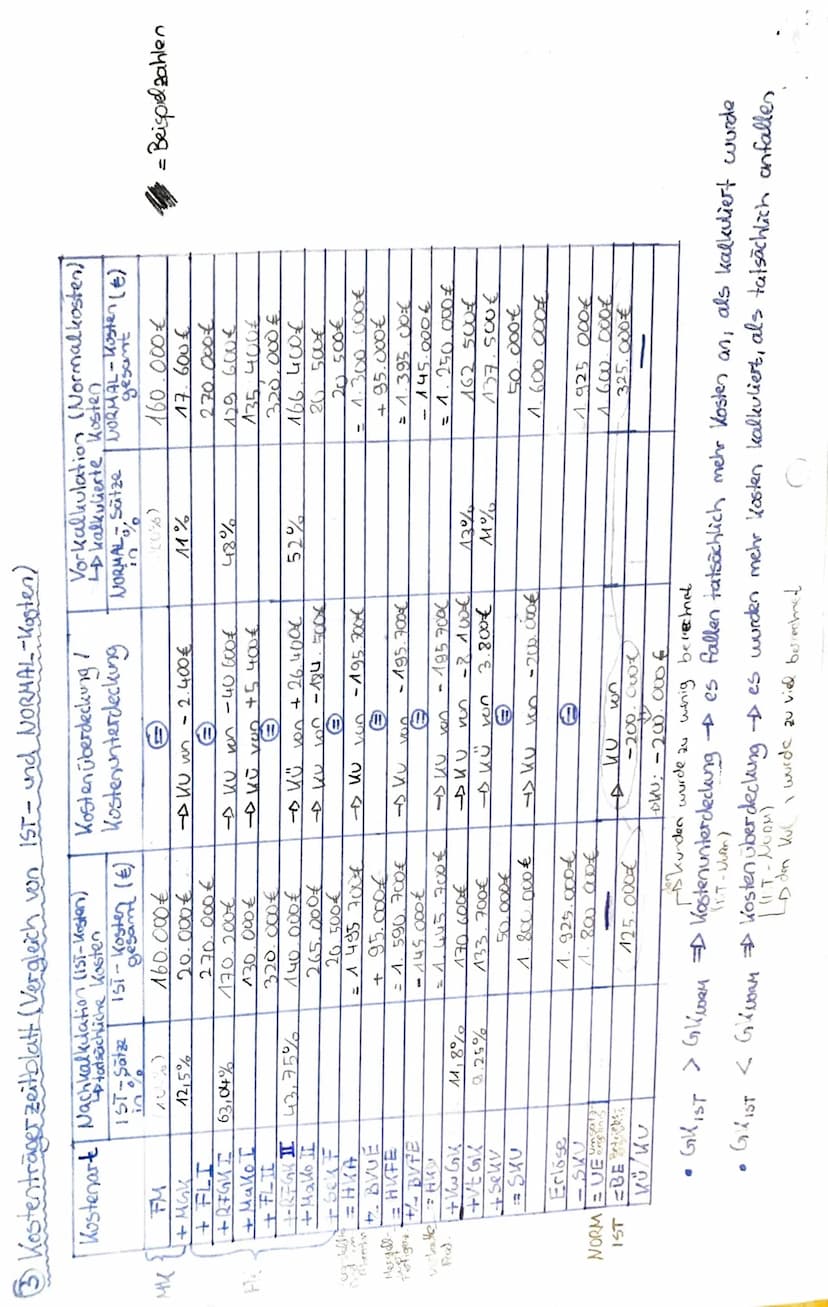 ③ Kostenträgerzeitblatt (Vergleich von IST- und NORMAL-Kosten)
Kostenart | Nachkalkulation (IST-Kosten) ↳ tatsächliche Kosten | Kostenüberdeckung / Kostenunterdeckung | Vorkalkulation (Normalkosten) ↳ kalkulierte Kosten
IST-Sätze in % | IST-Kosten gesamt (€) | NORMAL-Sätze in % | NORMAL-Kosten gesamt (€)
= Beispielzahlen
MK { FM | 160.000€ | = | 160.000€
+ MGK | 12,5% | 20.000€ | → KU von -2.400€ | 11% | 17.600€
+ FL I | 270.000€ | = | 270.000€
+ RFGK I | 63,04% | 170.200€ | → KU von -40.600€ | 48% | 129.600€
+ MaKo I | 130.000€ | → KÜ von +5.400€ | 135.400€
+ FL II | 320.000€ | = | 320.000€
+ RFGK II | 43,75% | 140.000€ | → KÜ von +26.400€ | 52% | 166.400€
+ MaKo II | 265.000€ | → KU von -184.500€ | 80.500€
+ SeKF | 20.500€ | = | 20.500€
= HKA | = 1.495.700€ | → KU von -195.700€ | = 1.300.000€
+/- BVUE | + 95.000€ | = | + 95.000€
= HKFE | = 1.590.700€ | → KU von -195.700€ | = 1.395.000€
+/- BVFE | - 145.000€ | = | - 145.000€
= HKU | = 1.445.700€ | → KU von -195.700€ | = 1.250.000€
+ VwGK | 11,8% | 170.600€ | → KU von -8.100€ | 13% | 162.500€
+ VtGK | 9,25% | 133.700€ | → KÜ von 3.800€ | 11% | 137.500€
+ SeKV | 50.000€ | = | 50.000€
= SKU | 1.800.000€ | → KU von -200.000€ | 1.600.000€
Erlöse | 1.925.000€ | = | 1.925.000€
- SKU | 1.800.000€ | 1.600.000€
NORM = UE Umsatzergebnis | — | → KU von -200.000€ | 325.000€
IST = BE Betriebs | 125.000€ | —
KÜ/KU | → KU: -200.000€
↳ Kunden wurde zu wenig berechnet
• GK IST > GK NORM ⇒ Kostenunterdeckung → es fallen tatsächlich mehr Kosten an, als kalkuliert wurde
• GK IST < GK NORM ⇒ Kostenüberdeckung → es wurden mehr Kosten kalkuliert, als tatsächlich anfallen.
↳ den wurde zu viel berechnet